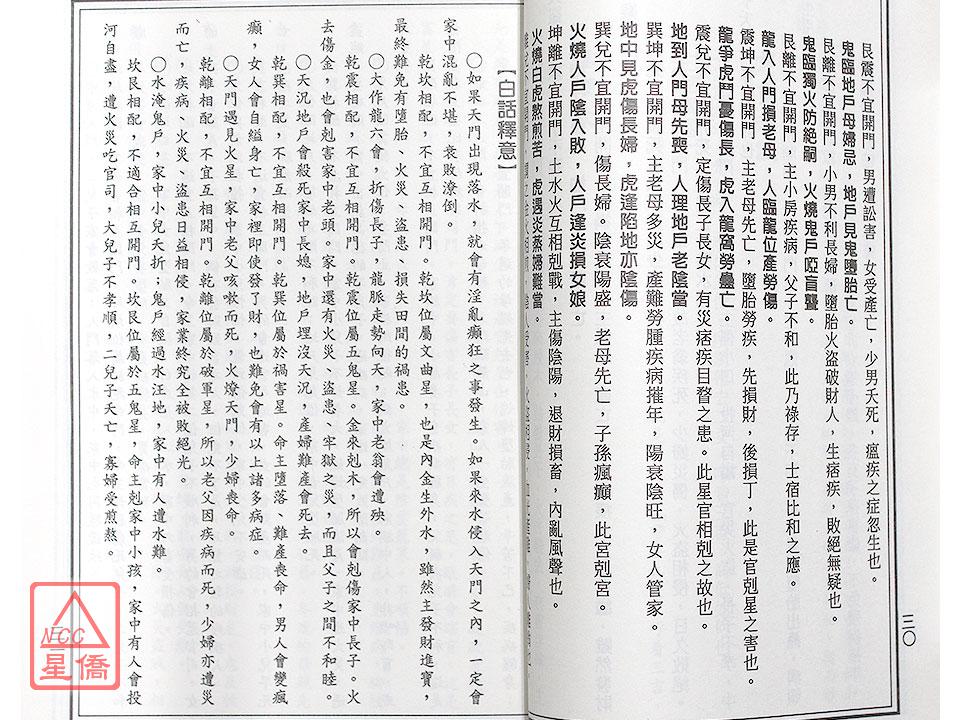 三〇
艮震不宜開門，男遭訟害，女受產亡，少男夭死，瘟疾之症忽生也。
鬼臨地戶母婦忌，地戶見鬼墮胎亡。
艮巽不宜開門，小男不利長婦，墮胎火盜破財人，生痞疾，敗絕無疑也。
鬼臨獨火防絶嗣，火燒鬼戶啞盲聾。
艮離不宜開門，主小房疾病，父子不和，此乃祿存，士宿比和之應。
龍入人門損老母，人臨龍位產勞傷。
震坤不宜開門，主老母先亡，墮胎勞疾，先損財，後損丁，此是官剋星之害也。
龍爭虎鬥憂傷長，虎入龍窩勞蠱亡。
震兌不宜開門，定傷長子長女，有災痞疾目瞀之患。此星官相剋之故也。
地到人門母先喪，人理地戶老陰當。
巽坤不宜開門，主老母多災，產難勞腫疾病摧年，陽衰陰旺，女人管家。
地中見虎傷長婦，虎逢陷地亦陰傷。
巽兌不宜開門，傷長婦。陰衰陽盛，老母先亡，子孫瘋癲，此宮剋宮。
火燒人戶陰入敗，人戶逢炎損女娘。
坤離不宜開門，土水火互相剋戰，主傷陰陽，退財損畜，內亂風聲也。
火燒白虎熬煎苦，虎遇炎蒸婦難當。
【白話釋意】
○如果天門出現落水，就會有淫亂癲狂之事發生。如果來水侵入天門之內，一定會
家中混亂不堪，衰敗潦倒。
乾坎相配，不宜互相開門。乾坎位屬文曲星，也是內金生外水，雖然主發財進寶，
最終難免有墮胎、火災、盜患、損失田間的禍患。
○大作龍六會，折傷長子，龍脈走勢向天，家中老翁會遭殃。
乾震相配，不宜互相開門。乾震位屬五鬼星。金來剋木，所以會剋傷家中長子。火
去傷金，也會剋害家中老頭。家中還有火災、盜患、牢獄之災，而且父子之間不和睦。
○天況地戶會殺死家中長媳，地戶埋沒天況，產婦難產會死去。
乾巽相配，不宜互相開門。乾巽位屬於禍害星。命主墮落、難產喪命，男人會變瘋
癲，女人會自縊身亡，家裡即使發了財，也難免會有以上諸多病症。
○天門遇見火星，家中老父咳嗽而死，火燎天門，少婦喪命。
乾離相配，不宜互相開門。乾離位屬於破軍星，所以老父因疾病而死，少婦亦遭災
而亡，疾病、火災、盜患日益相侵，家業終究全被敗絕光。
○水淹鬼戶，家中小兒夭折；鬼戶經過水汪地，家中有人遭水難。
坎艮相配，不適合相互開門。坎艮位屬於五鬼星，命主剋家中小孩，家中有人會投
河自盡，遭火災吃官司，大兒子不孝順，二兒子夭亡，寡婦受煎熬。
NCC
星僑